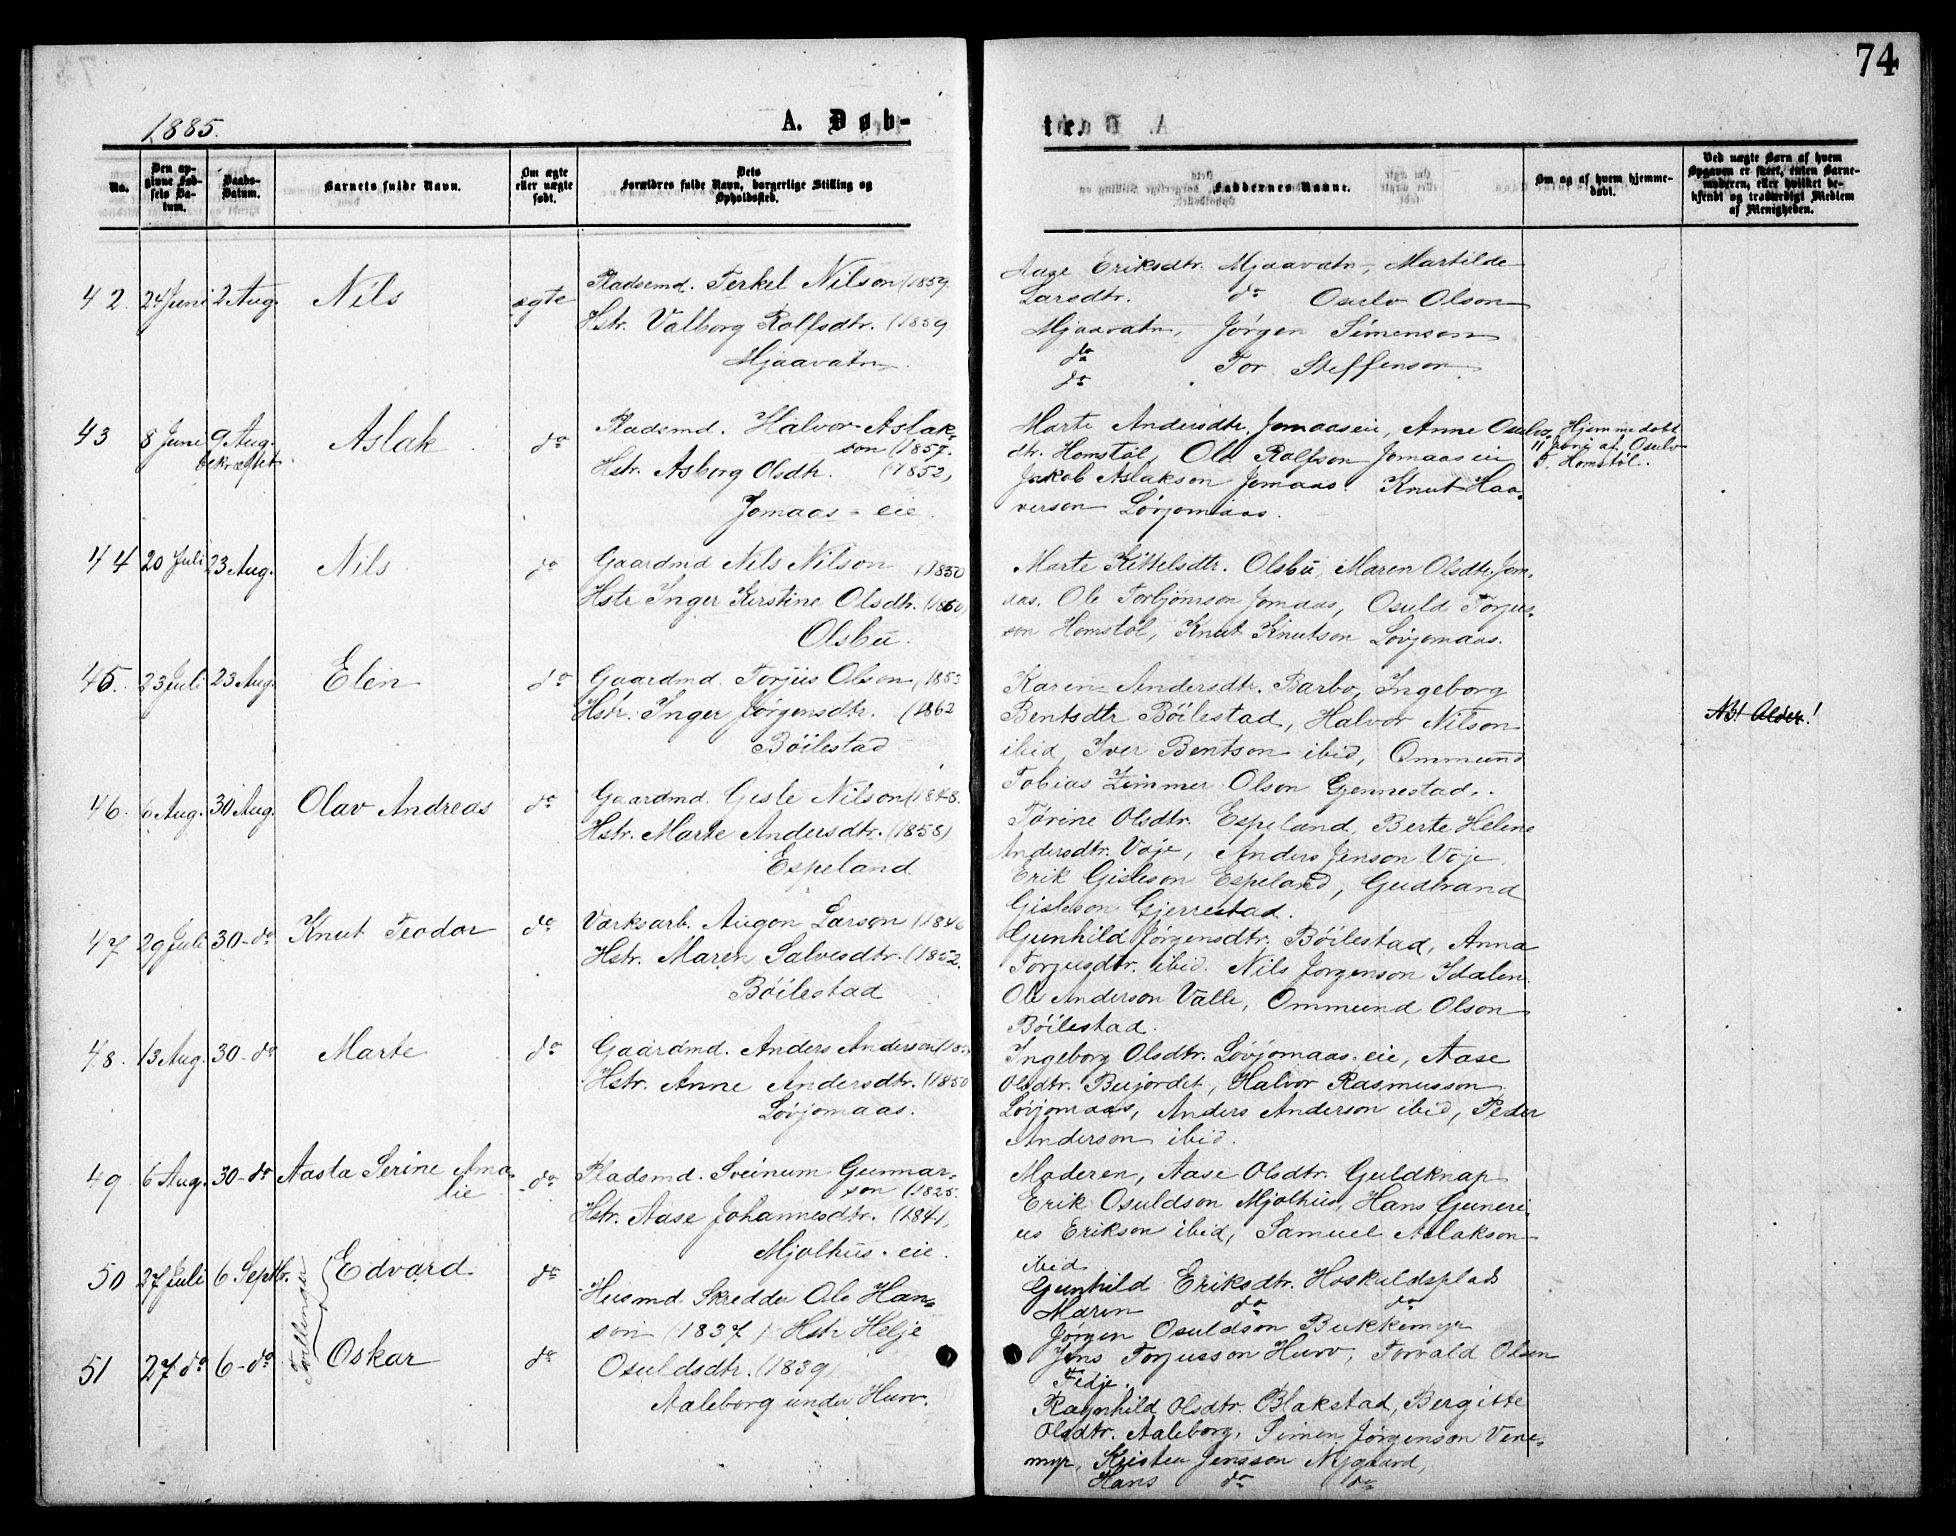 74
1885.
A. Døb-
te.
No.
Den op-
givne Fød-
sels Da-
tum.
Daabs-
Datum.
Barnets fulde Navn.
Om ægte
eller uægte
født.
Dets
Forældres fulde Navn, borgerlige Stilling og
Opholdssted.
Faddernes Navne.
Om og af hvem hjemme-
døbt.
Ved uægte Børn af hvem
Opgaven er skeet, enten Barne-
moderen, eller hvilket be-
kjendt og troværdigt Medlem
af Menigheden.
42. 24 Juni 2 Aug. Nils ægte
Pladsemd. Terkel Nilson (1859
Hstr. Valborg Rolfsdtr. (1859
Mjaavatn
Aase Eriksdtr. Mjaavatn, Martilde
Larsdtr. do Osulv Olson
Mjaavatn, Jørgen Simenson
do Tor Steffenson
do
43 8 Juni 9 Aug. bekræftet Aslak do
Pladsmd. Halvor Aslak-
son (1857.
Hstr. Asborg Olsdtr. (1852)
Jomaas - eie.
Marte Andersdtr. Jomaaseie, Anne Osulvs-
dtr. Homstøl, Ole Rolfson Jomaaseie
Jakob Aslakson Jomaas. Knut Haa-
verson Løvjomaas.
Hjemmedøbt
11 Juni af Osulv
T. Homstøl.
44 20 Juli 23 Aug. Nils do
Gaardmd Nils Nilson (1850
Hstr Inger Kirstine Olsdtr. (1860)
Olsbu.
Marte Kittelsdtr. Olsbu, Maren Olsdtr. Jom-
aas. Ole Torbjørnson Jomaas, Osuld Torjus-
son Homstøl, Knut Knutson Løvjomaas.
45. 23 Juli 23 Aug. Elen do
Gaardmd. Torjus Olson (1853
Hstr. Inger Jørgensdtr. (1862
Bøilestad
Karen Andersdtr. Barbo, Ingeborg
Bentsdtr Bøilestad, Halvor Nilson
ibid, Iver Bentson ibid, Ommund
Tobias Zimmer Olson Gennestad.
NB! Alder!
46. 6 Aug. 30 Aug. Olav Andreas do
Gaardmd. Gisle Nilson (1848.
Hstr. Marte Andersdtr. (1858)
Espeland
Tørine Olsdtr. Espeland, Berte Helene
Andersdtr. Voje, Anders Jenson Voje
Erik Gisleson Espeland, Gudbrand
Gisleson Gjerrestad.
47 29 Juli 30 - do Knut Teodor do
Værksarb. Augon Larson (1846
Hstr. Maren Salvesdtr. (1852.
Bøilestad
Gunhild Jørgensdtr. Bøilestad, Anna
Torjusdtr. ibid. Nils Jørgenson Idalen.
Ole Anderson Valle, Ommund Olson
Bøilestad.
48. 13 Aug. 30 - do Marte do
Gaardmd. Anders Anderson
Hstr. Anne Andersdtr. (1850
Løvjomaas.
Ingeborg Olsdtr. Løvjomaas-eie, Aase
Olsdtr. Bujordet, Halvor Rasmusson
Løvjomaas, Anders Anderson ibid, Peder
Anderson ibid.
49 6 Aug. 30 - do Aasta Serine Ama-
lie do
Pladsmd. Sveinum Gunnar-
son (1825.
Hstr. Aase Johannesdtr. (1841,
Mjølhus - eie.
Moderen, Aase Olsdtr. Guldknap
Erik Osuldson Mjølhus, Hans Guneri-
us Erikson ibid, Samuel Aslakson
ibid
50 27 Juli 6 Septbr. Edvard do
Tvillinger
Husmd. Skredder Ole Han-
son (1837) Hstr Helje
Osuldsdtr. (1839)
Aaleborg under Hurv.
Gunhild Eriksdtr. Hoskuldsplads
Maren do do
Jørgen Osuldson Bukkemyr
Jens Torjusson Hurv, Torvald Olsen
Fedje.
51 27 do 6 - do Oskar do
Ragnhild Olsdtr. Blakstad, Bergitte
Olsdtr. Aaleborg, Simen Jørgenson Vene-
myr, Kristen Jensson Nygaard,
Hans do do